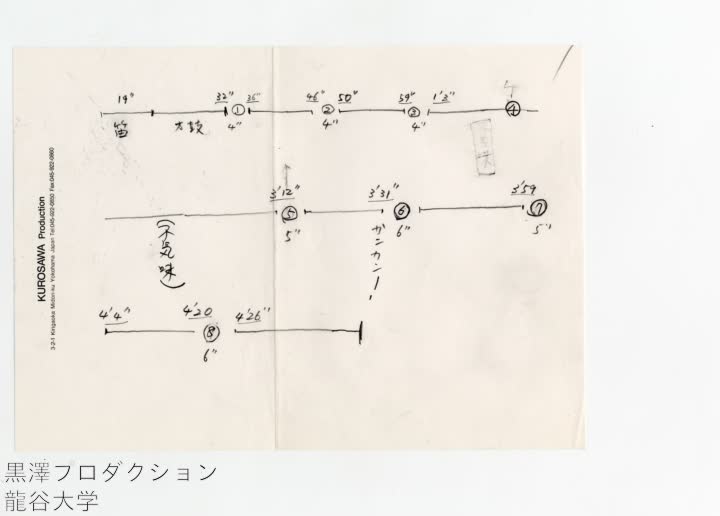 19" 32" ① 36" 46" ② 50" 59" ③ 1'3" ④
笛 太鼓 4" 4" 4"
3'12" 3'31" 3'59
⑤ ⑥ ⑦
5" 6" 5"
(不気味)
ガンガンー!
4'4" 4'20 4'26"
⑧
6"
KUROSAWA Production
3-2-1 Kirigaoka Midori-ku Yokohama Japan Tel:045-922-0850 Fax:045-922-0860
黒澤プロダクション
龍谷大学